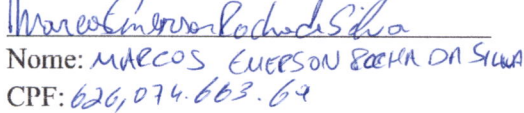 Marcos Emerson Rocha da Silva
Nome: MARCOS EMERSON ROCHA DA SILVA
CPF: 626,074.663.69